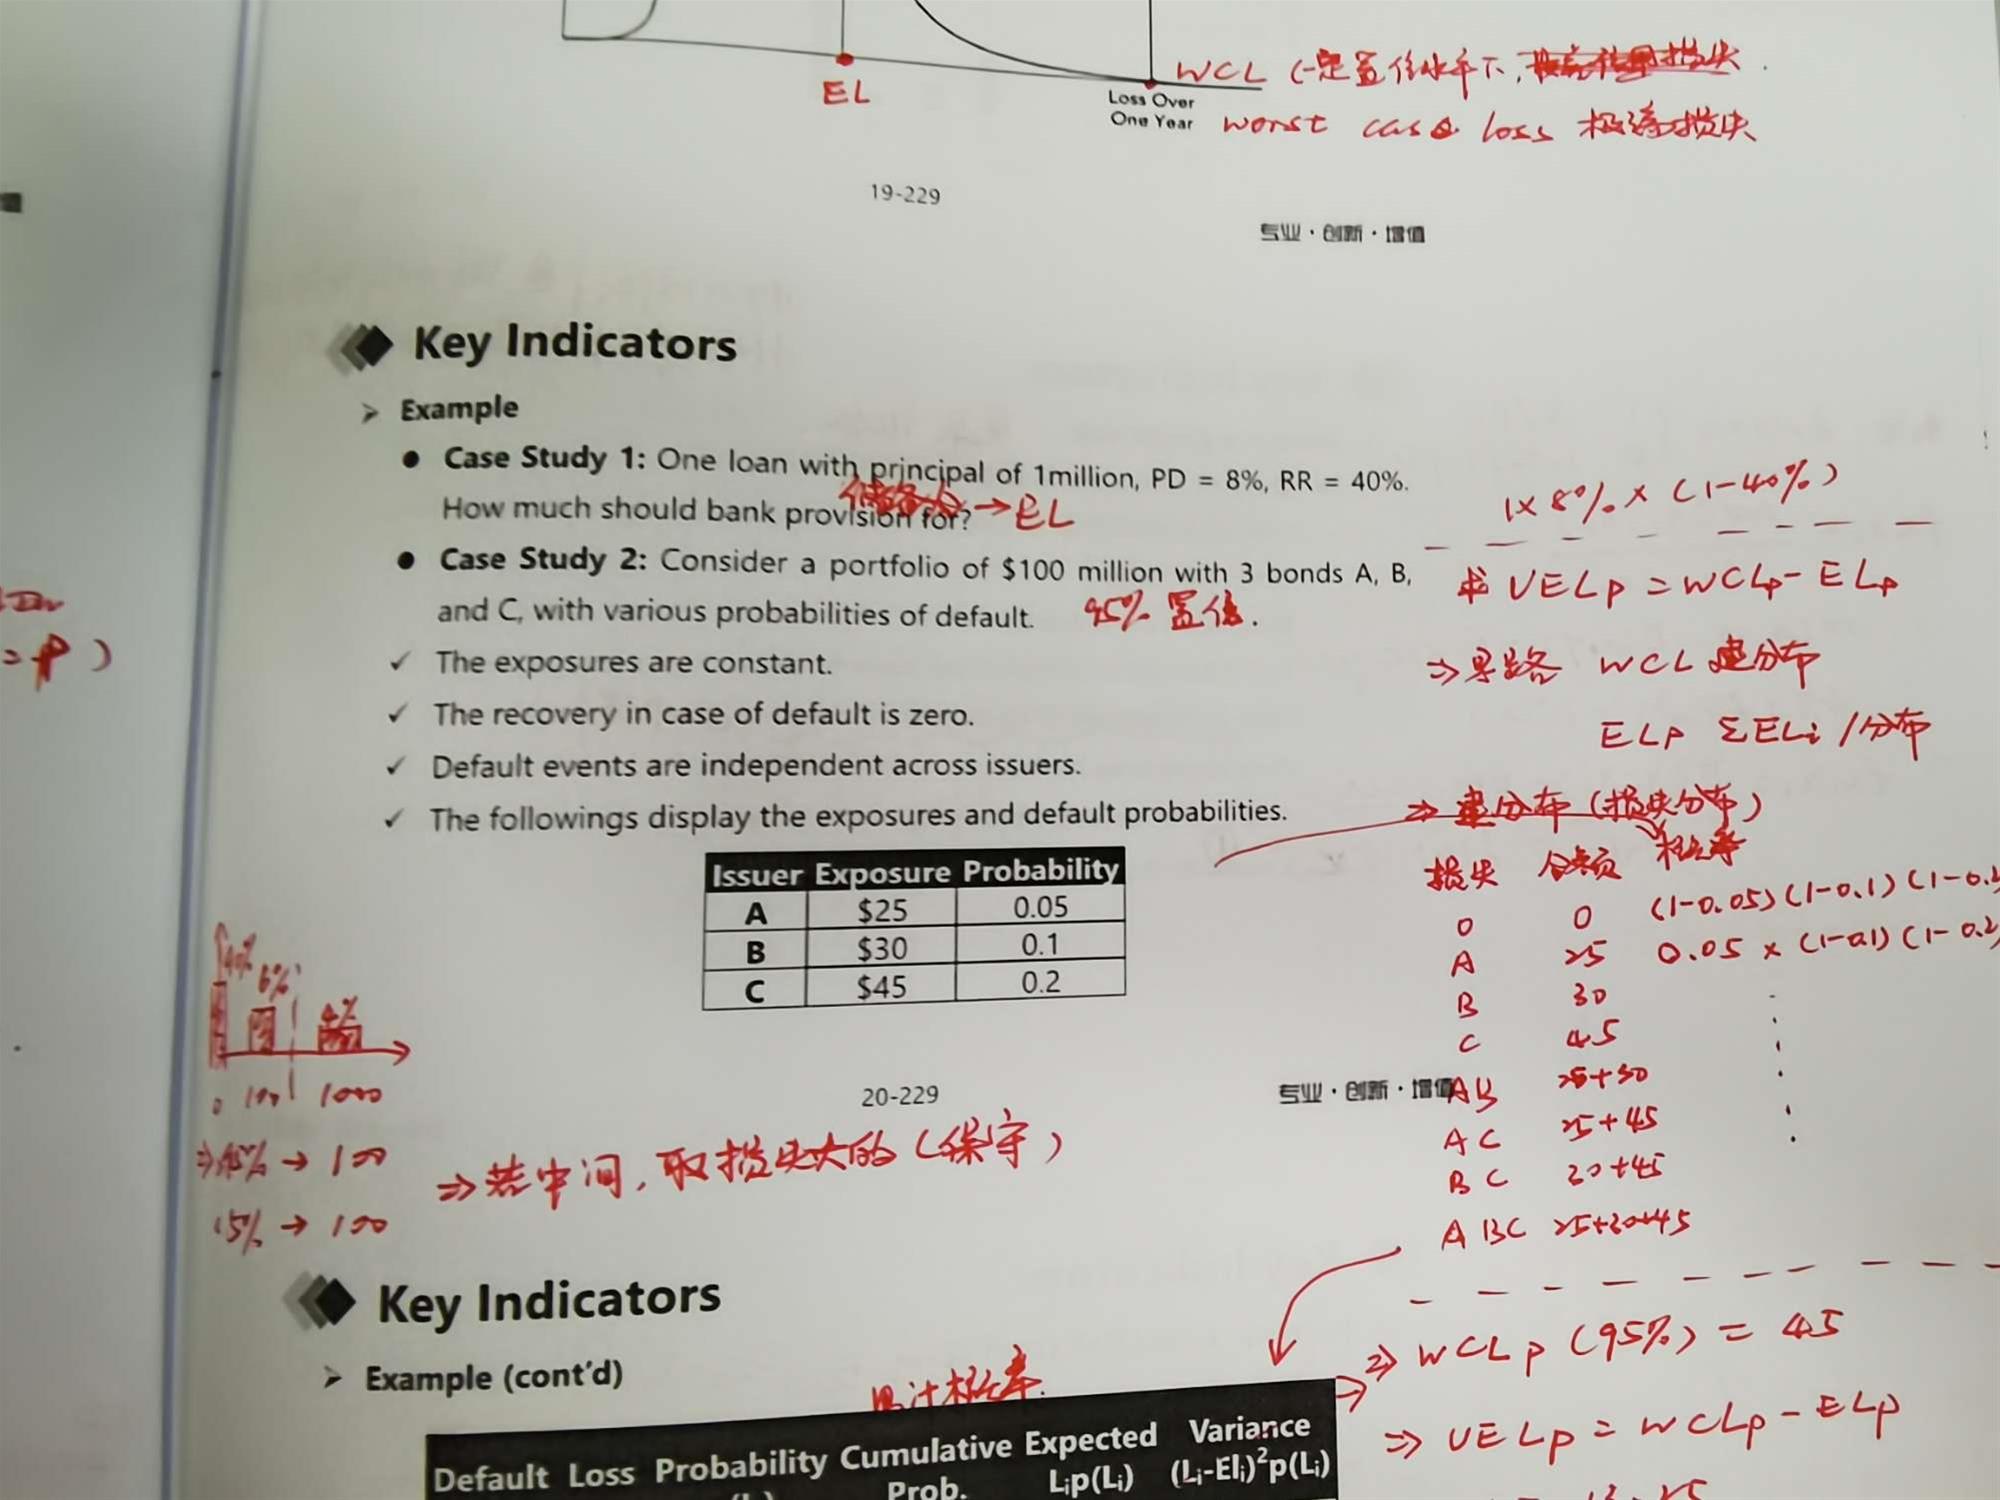 EL
WCL (一定置信水平下,
Loss Over
One Year
worst case loss 极端损失
19-229
专业·创新·增值
Key Indicators
Example
Case Study 1: One loan with principal of 1million, PD = 8%, RR = 40%.
How much should bank provision for? → EL
1×8%×(1-40%)
Case Study 2: Consider a portfolio of $100 million with 3 bonds A, B,
and C, with various probabilities of default. 95%置信.
求 UELp = WCLp - ELp
The exposures are constant.
⇒ 思路 WCL 建分布
The recovery in case of default is zero.
ELp ΣELi /分布
Default events are independent across issuers.
The followings display the exposures and default probabilities.
⇒ 建分布(损失分布)
Issuer Exposure Probability
A $25 0.05
B $30 0.1
C $45 0.2
损失 概率
0 0 (1-0.05)(1-0.1)(1-0.2
A 25 0.05 × (1-0.1)(1-0.2)
B 30
C 45
AB 25+30
AC 25+45
BC 30+45
ABC 25+30+45
90% 6% 4%
0 100 1000
⇒95% → 100
95% → 100
20-229
专业·创新·增值
⇒若中间,取损失大的(保守)
Key Indicators
Example (cont'd)
累计概率.
⇒ WCLp (95%) = 45
⇒ UELp = WCLp - ELp
Default Loss Probability Cumulative Expected Variance
Prob. Lᵢp(Lᵢ) (Lᵢ-Elᵢ)²p(Lᵢ)